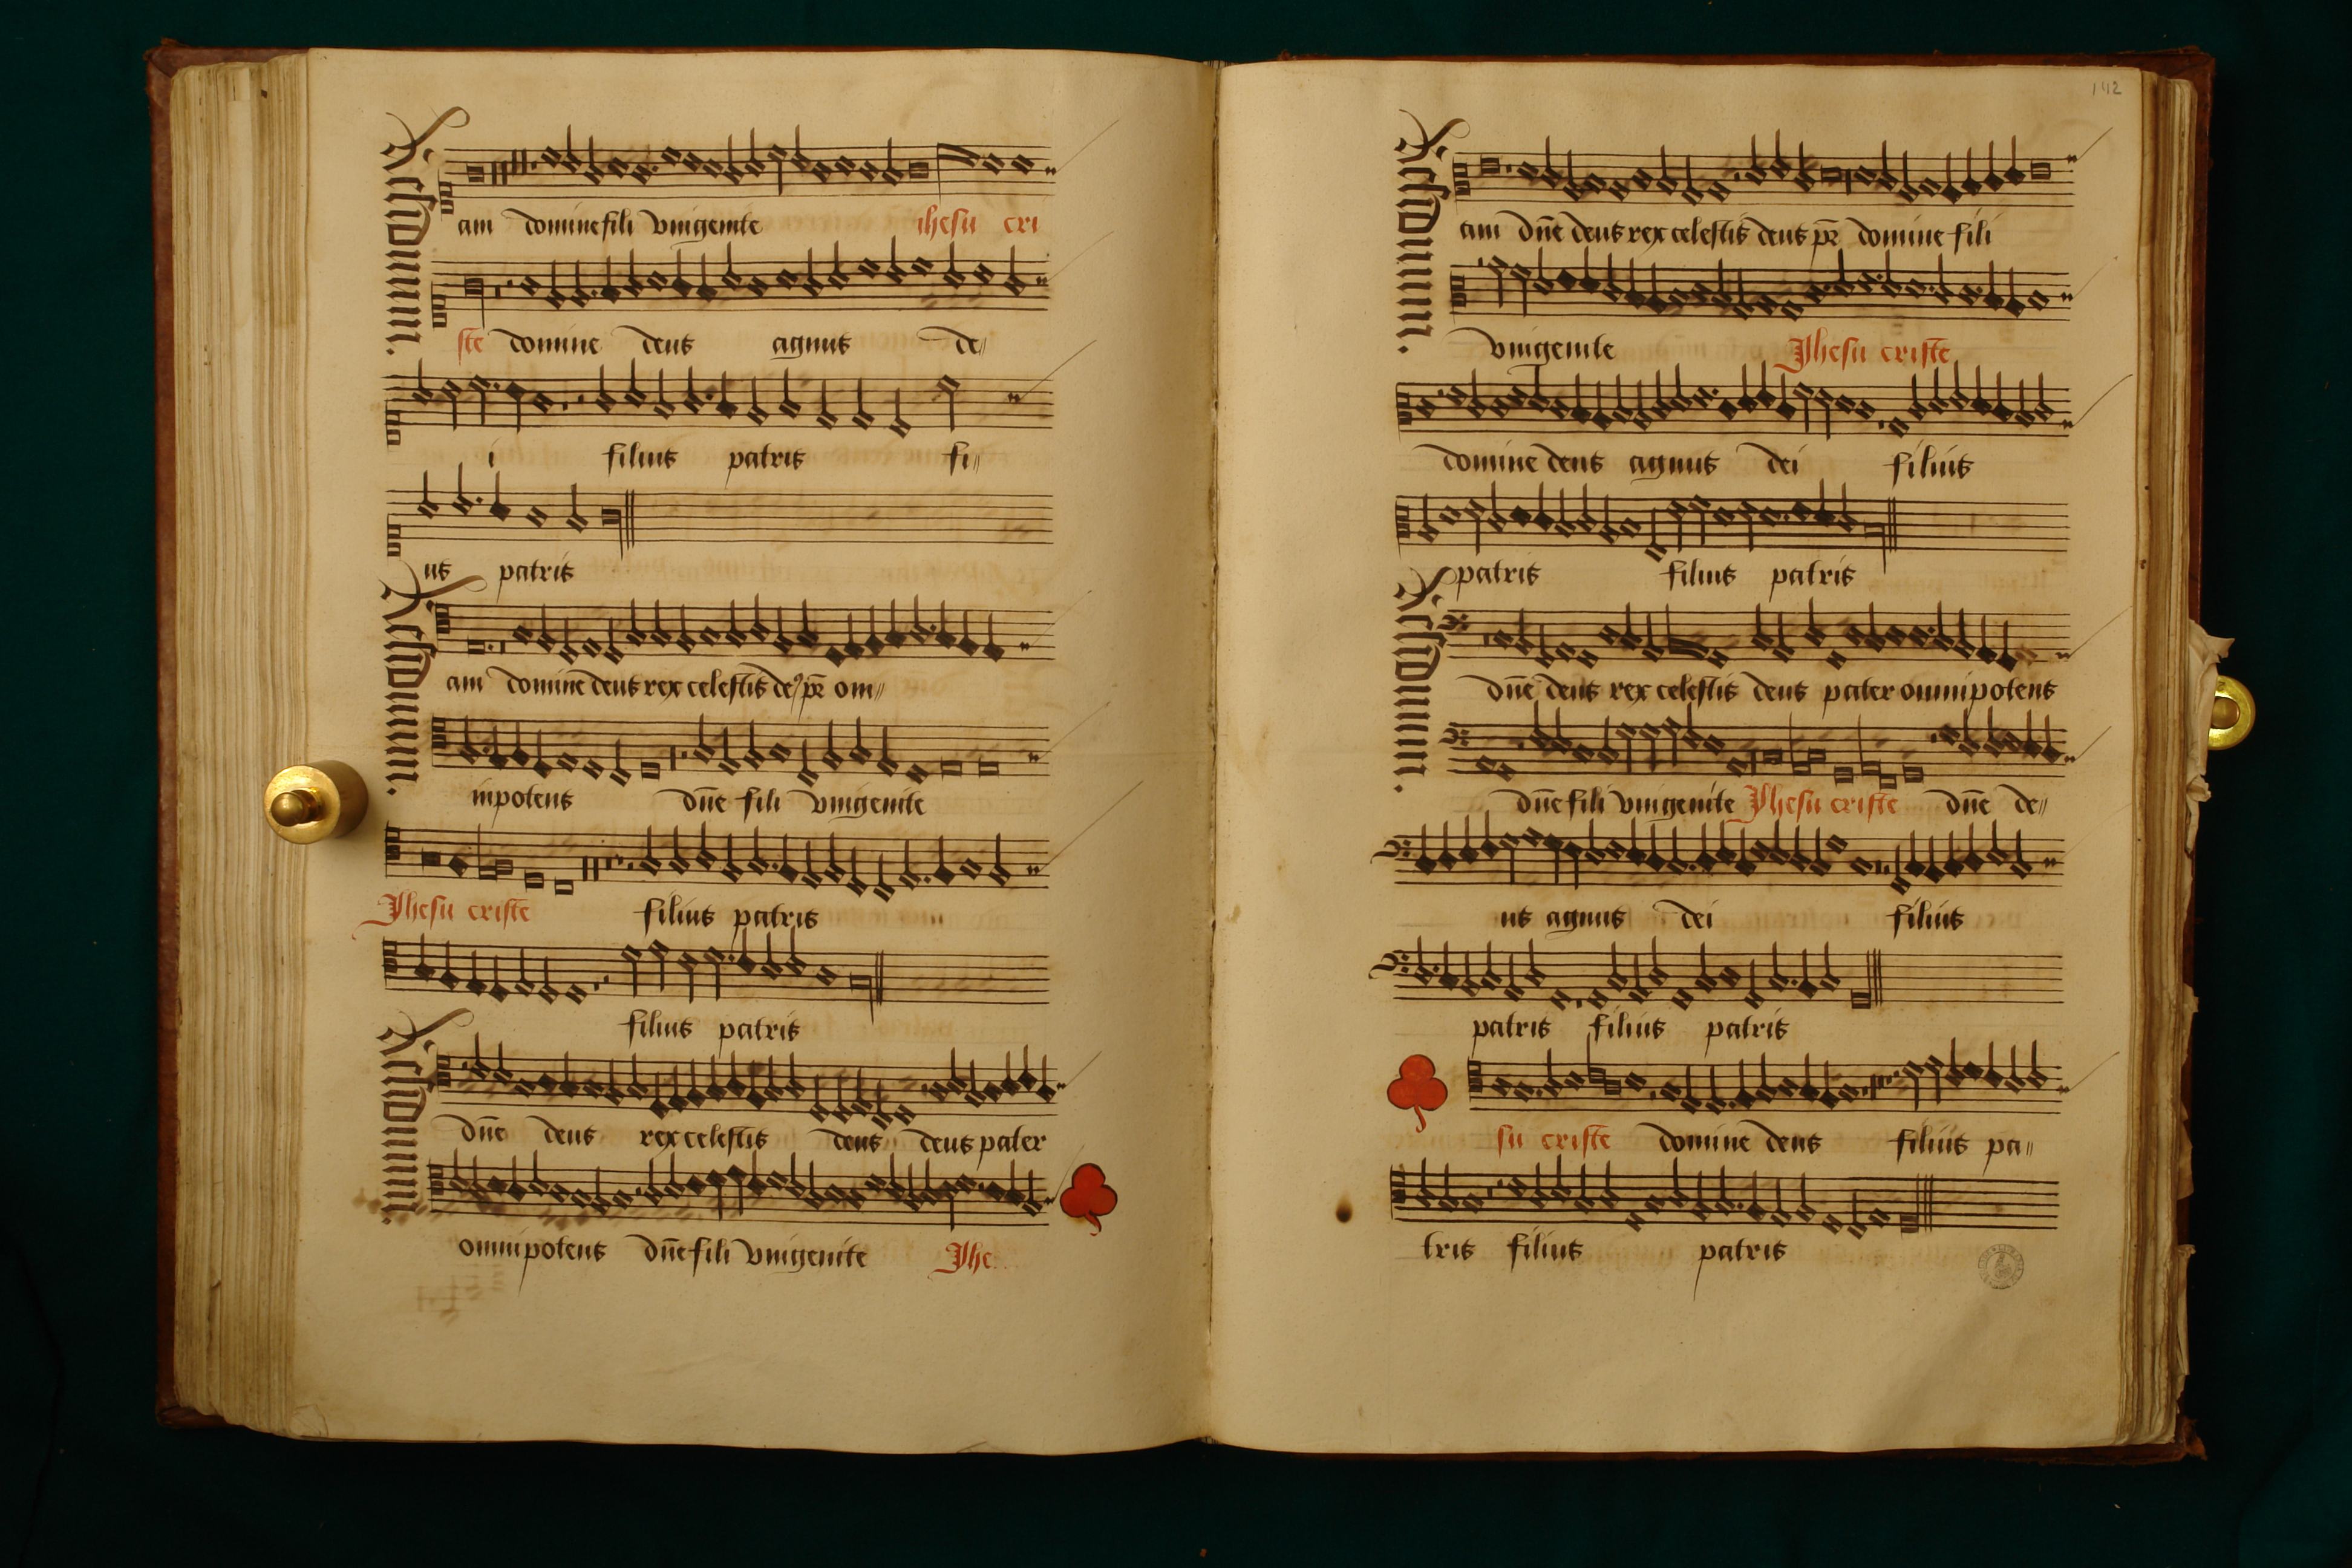 am domine fili vnigenite ihesu cri
ste domine deus agnus de〃
i filius patris fi〃
us patris
am domine deus rex celestis de9 pr̄ om〃
nipotens dn̄e fili vnigenite
Jhesu criste filius patris
filius patris
dn̄e deus rex celestis deus deus pater
omnipotens dn̄e fili vnigenite Jhe
142
am dn̄e deus rex celestis deus pr̄ domine fili
vnigenite Jhesu criste
domine deus agnus dei filius
patris filius patris
dn̄e deus rex celestis deus pater omnipotens
dn̄e fili vnigenite Jhesu criste dn̄e de〃
us agnus dei filius
patris filius patris
su criste domine deus filius pa〃
tris filius patris